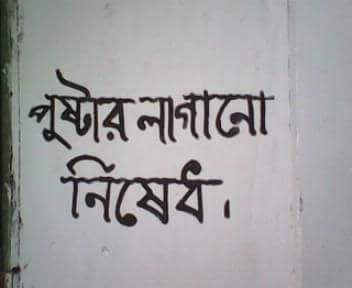 পুষ্টার লাগানো
নিষেধ।